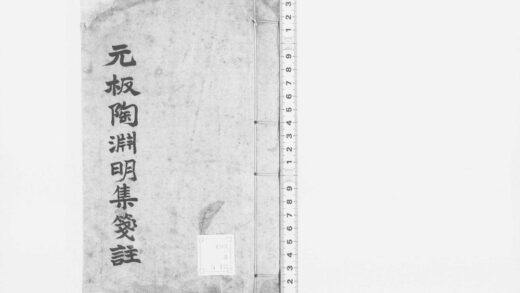 元板陶淵明集箋註